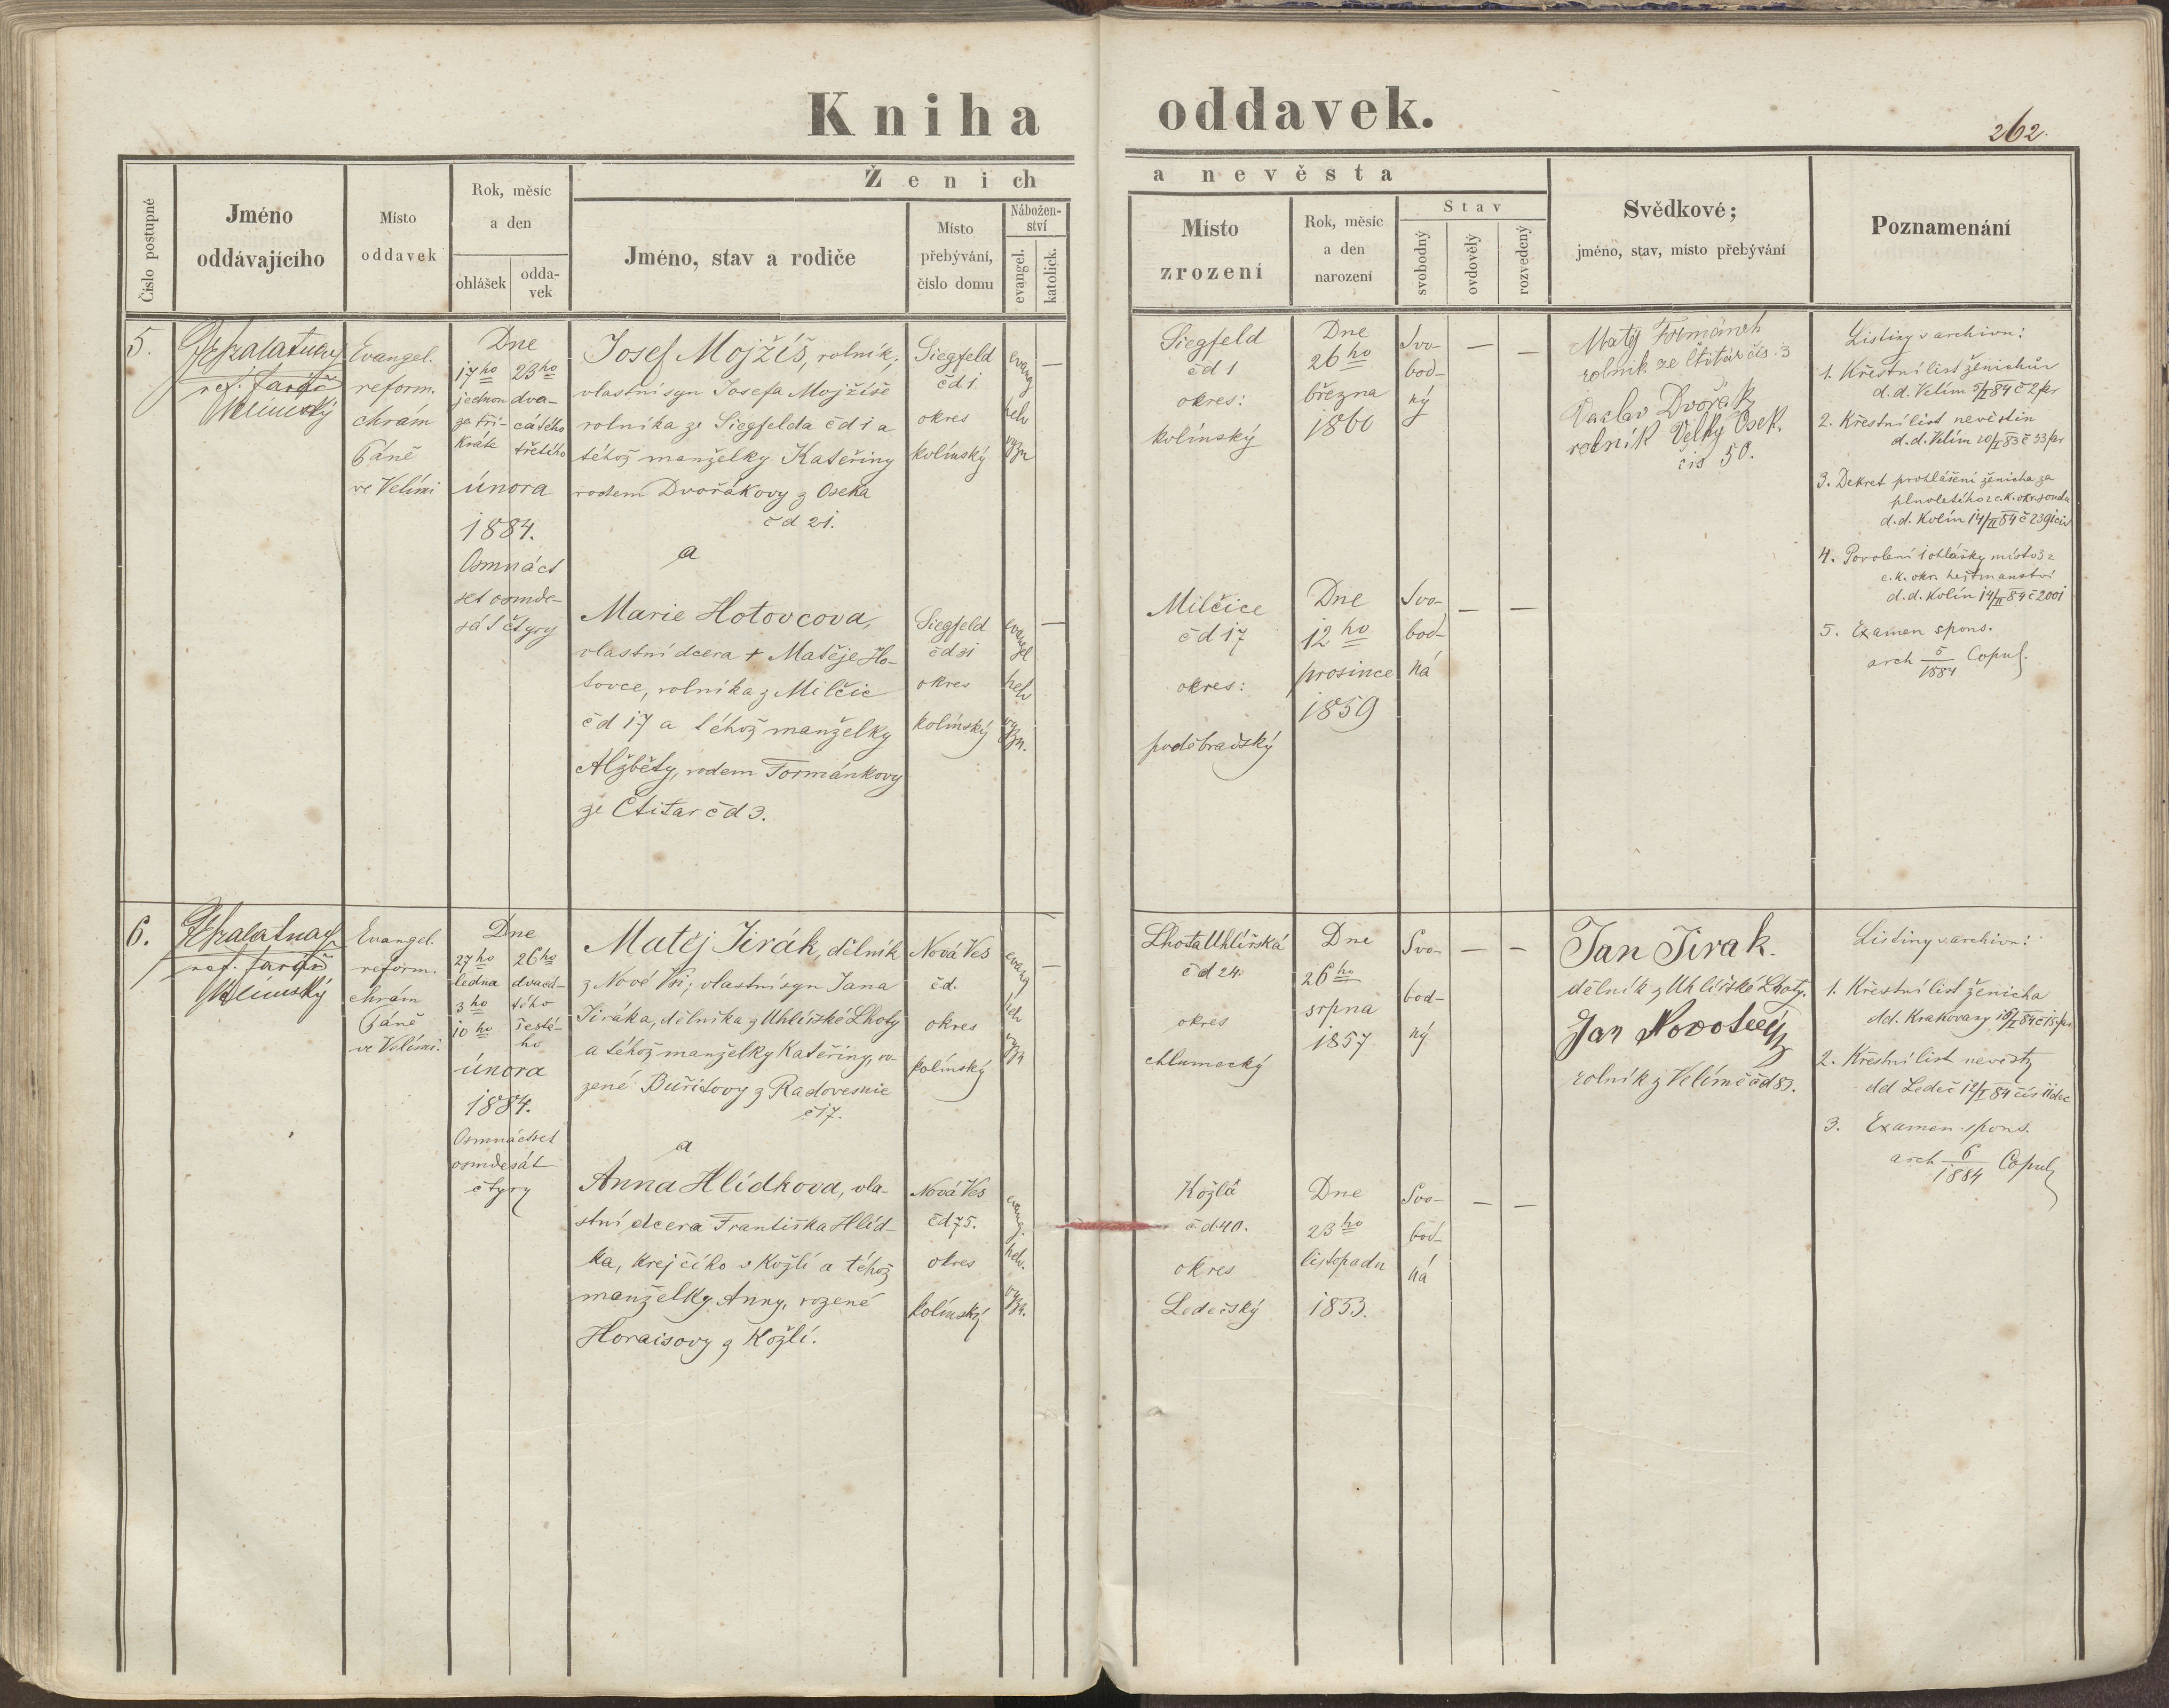 Kniha oddavek.
262.
Číslo postupné
Jméno
oddávajícího
Místo
oddavek
Rok, měsíc
a den
ohlášek
odda-
vek
Ženich
Jméno, stav a rodiče
Místo
přebývání,
číslo domu
Nábožen-
ství
evangel.
katolick.
a nevěsta
Místo
zrození
Rok, měsíc
a den
narození
Stav
svobodný
ovdovělý
rozvedený
Svědkové;
jméno, stav, místo přebývání
Poznamenání
5.
ref. farář
Velimský
Evangel.
reform.
chrám
Páně
ve Velimi
Dne
17ho
jednou
za tři-
kráte
23ho
dva-
cátého
třetího
února
1884.
Osmnáct
set osmde-
sát čtyry
Josef Mojžíš, rolník,
vlastní syn Josefa Mojžíše
rolníka ze Siegfelda čd 1 a
téhož manželky Kateřiny
rodem Dvořákovy z Oseka
čd 21.
a
Marie Hotovcova,
vlastní dcera + Matěje Ho-
tovce, rolníka z Milčic
čd 17 a téhož manželky
Alžběty, rodem Formánkovy
ze Čtitar čd 3.
Siegfeld
čd 1
okres
kolínský
evang
helv
vyzn
—
Siegfeld
čd 31
okres
kolínský
evangel
helv
vyzn.
—
Siegfeld
čd 1
okres:
kolínský
Dne
26ho
března
1860
Svo-
bod-
ný
—
—
Milčice
čd 17
okres:
poděbradský
Dne
12ho
prosince
1859
Svo-
bod-
ná
—
—
Matěj Formánek
rolník ze Čtitár čís. 3
Václav Dvořák
rolník Velký Osek.
čis 50.
Listiny v archivu:
1. Křestní list ženichův
d.d. Velim 5/II 84 č 2 fas
2. Křestní list nevěstin
3. Dekret prohlášení ženicha za
plnoletého z c.k. okr. soudu
d.d. Kolín 14/II 84 č 2391 civ
4. Povolení 1 ohlášky místo 3 z
c.k. okr. hejtmanství
d.d. Kolín 14/II 84 č 2001
5. Examen spons.
arch 5/1884 Copul.
6.
ref. farář
Velimský
Evangel.
reform.
chrám
Páně
ve Velimi.
Dne
27ho
ledna
3ho
10ho
26ho
dvacá-
tého
šesté-
ho
února
1884.
Osmnáctset
osmdesát
čtyry
Matěj Jirák, dělník
z Nové Vsi, vlastní syn Jana
Jiráka, dělníka z Uhlířské Lhoty
a téhož manželky Kateřiny, ro-
zené Buřitovy z Radovesnic
č 17.
a
Anna Hlídkova, vla-
stní dcera Františka Hlíd-
ka, krejčího v Kožlí a téhož
manželky Anny, rozené
Horaisovy z Kožlí.
Nová Ves
čd.
okres
kolínský
evang
helv
vyzn
—
Nová Ves
čd 75.
okres
kolínský
evang.
helv.
vyzn.
Lhota Uhlířská
čd 24.
okres
chlumecký
Dne
26ho
srpna
1857
Svo-
bod-
ný
—
—
Kožlá
čd 40.
okres
Ledečský
Dne
23ho
listopadu
1853.
Svo-
bod-
ná
—
—
Jan Jirak.
dělník z Uhlířské Lhoty.
Jan Novotný
rolník z Velimě čd 83.
Listiny v archivu:
1. Křestní list ženicha
2. Křestní list nevěsty
3. Examen spons.
arch 6/1884 Copul